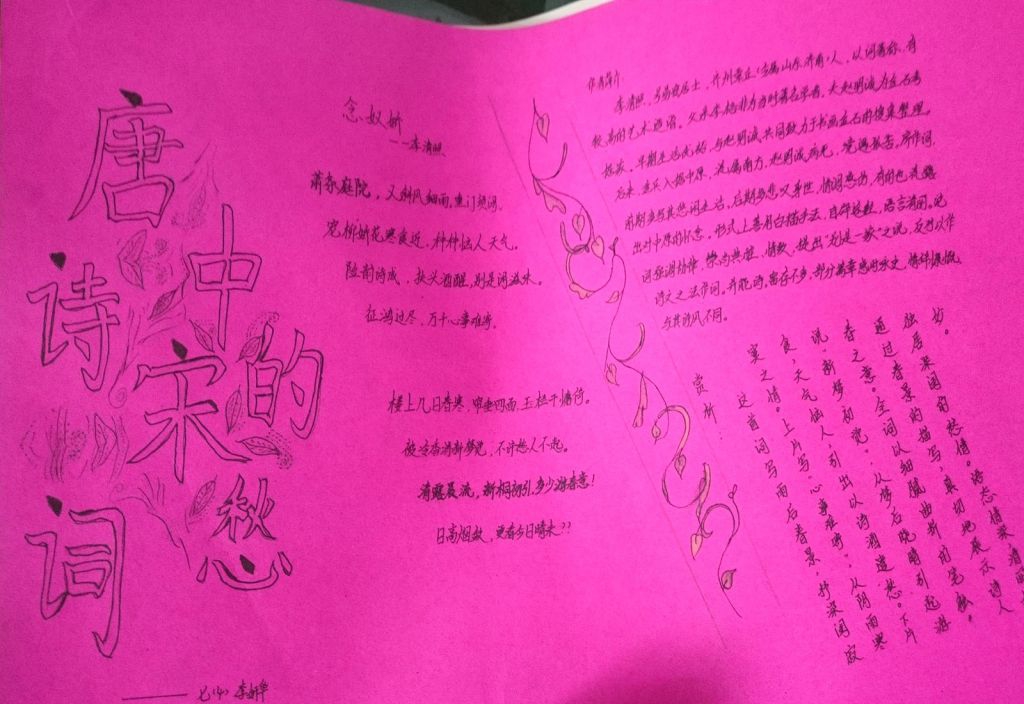 唐诗宋词
中的愁
七(4) 李妍华
念奴娇
--李清照
萧条庭院，又斜风细雨，重门须闭。
宠柳娇花寒食近，种种恼人天气。
险韵诗成，扶头酒醒，别是闲滋味。
征鸿过尽，万千心事难寄。
楼上几日春寒，帘垂四面，玉栏干慵倚。
被冷香消新梦觉，不许愁人不起。
清露晨流，新桐初引，多少游春意！
日高烟敛，更看今日晴未??
作者简介
李清照，号易安居士，齐州章丘（今属山东济南）人，以词著称，有
较高的艺术造诣。父亲李格非为当时著名学者，夫赵明诚为金石考
据家。早期生活优裕，与赵明诚共同致力于书画金石的搜集整理。
后来，金兵入据中原，流寓南方，赵明诚病死，境遇孤苦。所作词，
前期多写其悠闲生活，后期多悲叹身世，情调感伤，有的也流露
出对中原的怀念。形式上善用白描手法，自辟途径，语言清丽。论
词强调协律，崇尚典雅、情致，提出"别是一家"之说，反对以作
诗文之法作词。并能诗，留存不多，部分篇章感时咏史，情辞慷慨，
与其词风不同。
赏析
这首词写雨后春景，抒深闺寂
寞之情。上片写"心事难寄"，从阴雨寒
食，天气恼人，引出以诗酒遣愁。下片
说"新梦初觉"，从梦后晓晴引起游
春之意。全词以细腻曲折的笔触，
通过春景的描写，真切地展示诗人
独居深闺的愁情。情态深，清丽
妙。